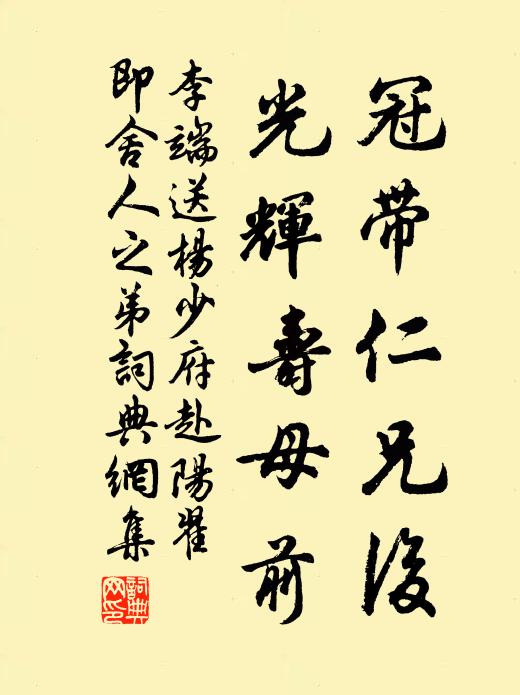 冠帶仁兄後
光輝壽母前
李端送楊少府赴陽翟
即舍人之弟詞典網集
詞典
网印